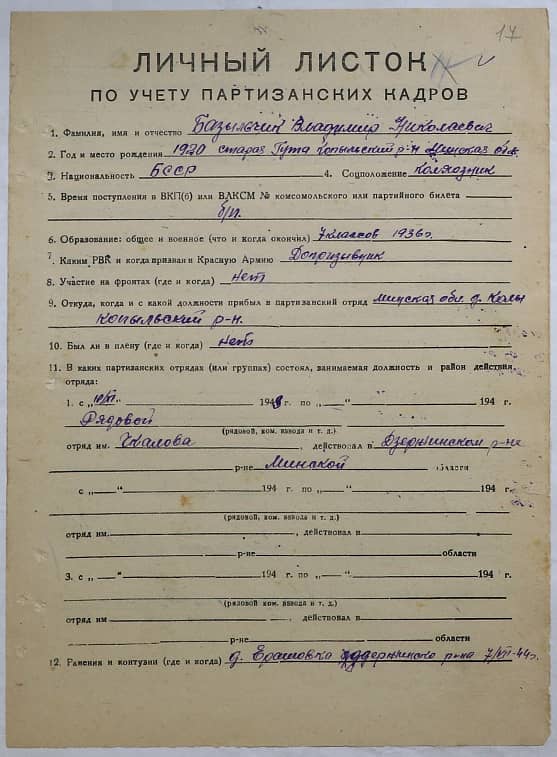 17
ЛИЧНЫЙ ЛИСТОК
ПО УЧЕТУ ПАРТИЗАНСКИХ КАДРОВ
1. Фамилия, имя и отчество Базылычик Владимир Николаевич
2. Год и место рождения 1920 старая Гута Копыльский р-н Минская обл.
3. Национальность БССР 4. Соцположение Колхозник
5. Время поступления в ВКП(б) или ВЛКСМ № комсомольского или партийного билета
б/п.
6. Образование: общее и военное (что и когда окончил) 7 классов 1936г.
7. Каким РВК и когда призван в Красную Армию Допризывник
8. Участие на фронтах (где и когда) нет
9. Откуда, когда и с какой должности прибыл в партизанский отряд Минская обл. д.
Копыльский р-н.
10. Был ли в плену (где и когда) нет
11. В каких партизанских отрядах (или группах) состоял, занимаемая должность и район действия
отряда:
1. с „ " 194 г. по „—" 194 г.
Рядовой
(рядовой, ком. взвода и т. д.)
отряд им. Чкалова, действовал в Дзержинском р-не
р-не Минской области
с „—" 194 г. по „—" 194 г.
(рядовой, ком. взвода и т. д.)
отряд им. , действовал в
р-не области
3. с „—" 194 г. по „—" 194 г.
(рядовой, ком. взвода и т. д.)
отряд им , действовал в
р-не области
12. Ранения и контузии (где и когда) д. Ерашовка р-на 7/VII-44г.